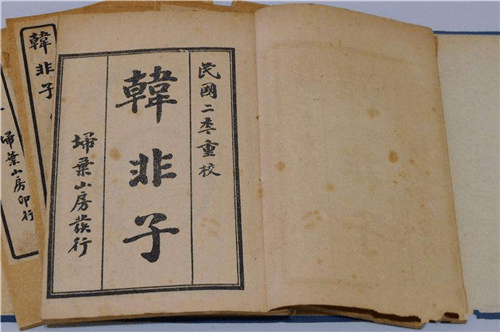 民國二季重校
韓非子
埽葉山房發行
韓非子
埽葉山房印行